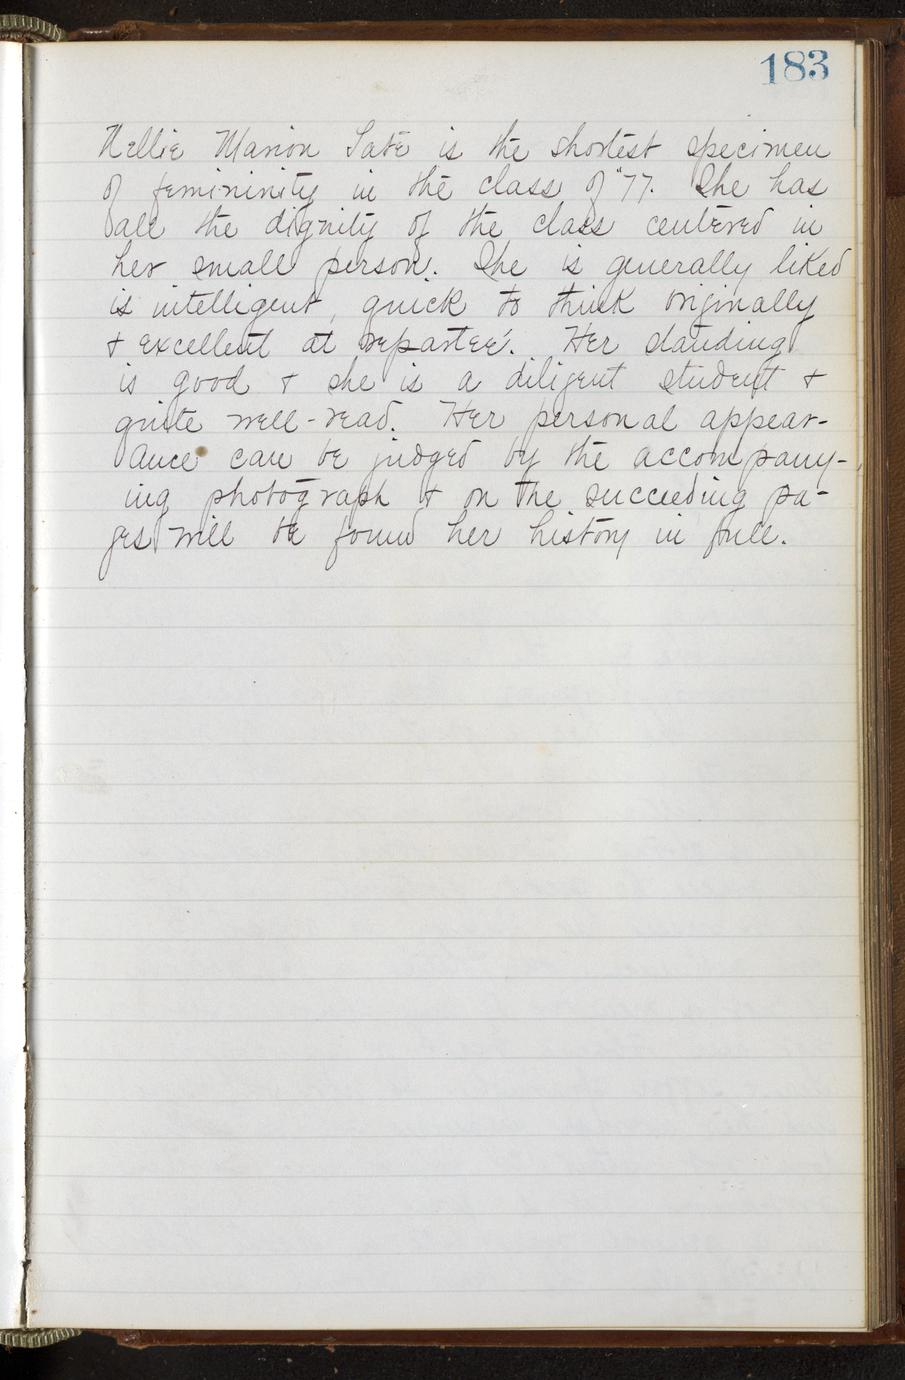 183
Nellie Marion Tate is the shortest specimen
of femininity in the class of "77. She has
all the dignity of the class centered in
her small person. She is generally liked
is intelligent, quick to think originally
& excellent at repartee'. Her standing
is good & she is a diligent student &
quite well-read. Her personal appear-
ance can be judged by the accompany-
ing photograph & on the succeeding pa-
ges will be found her history in full.